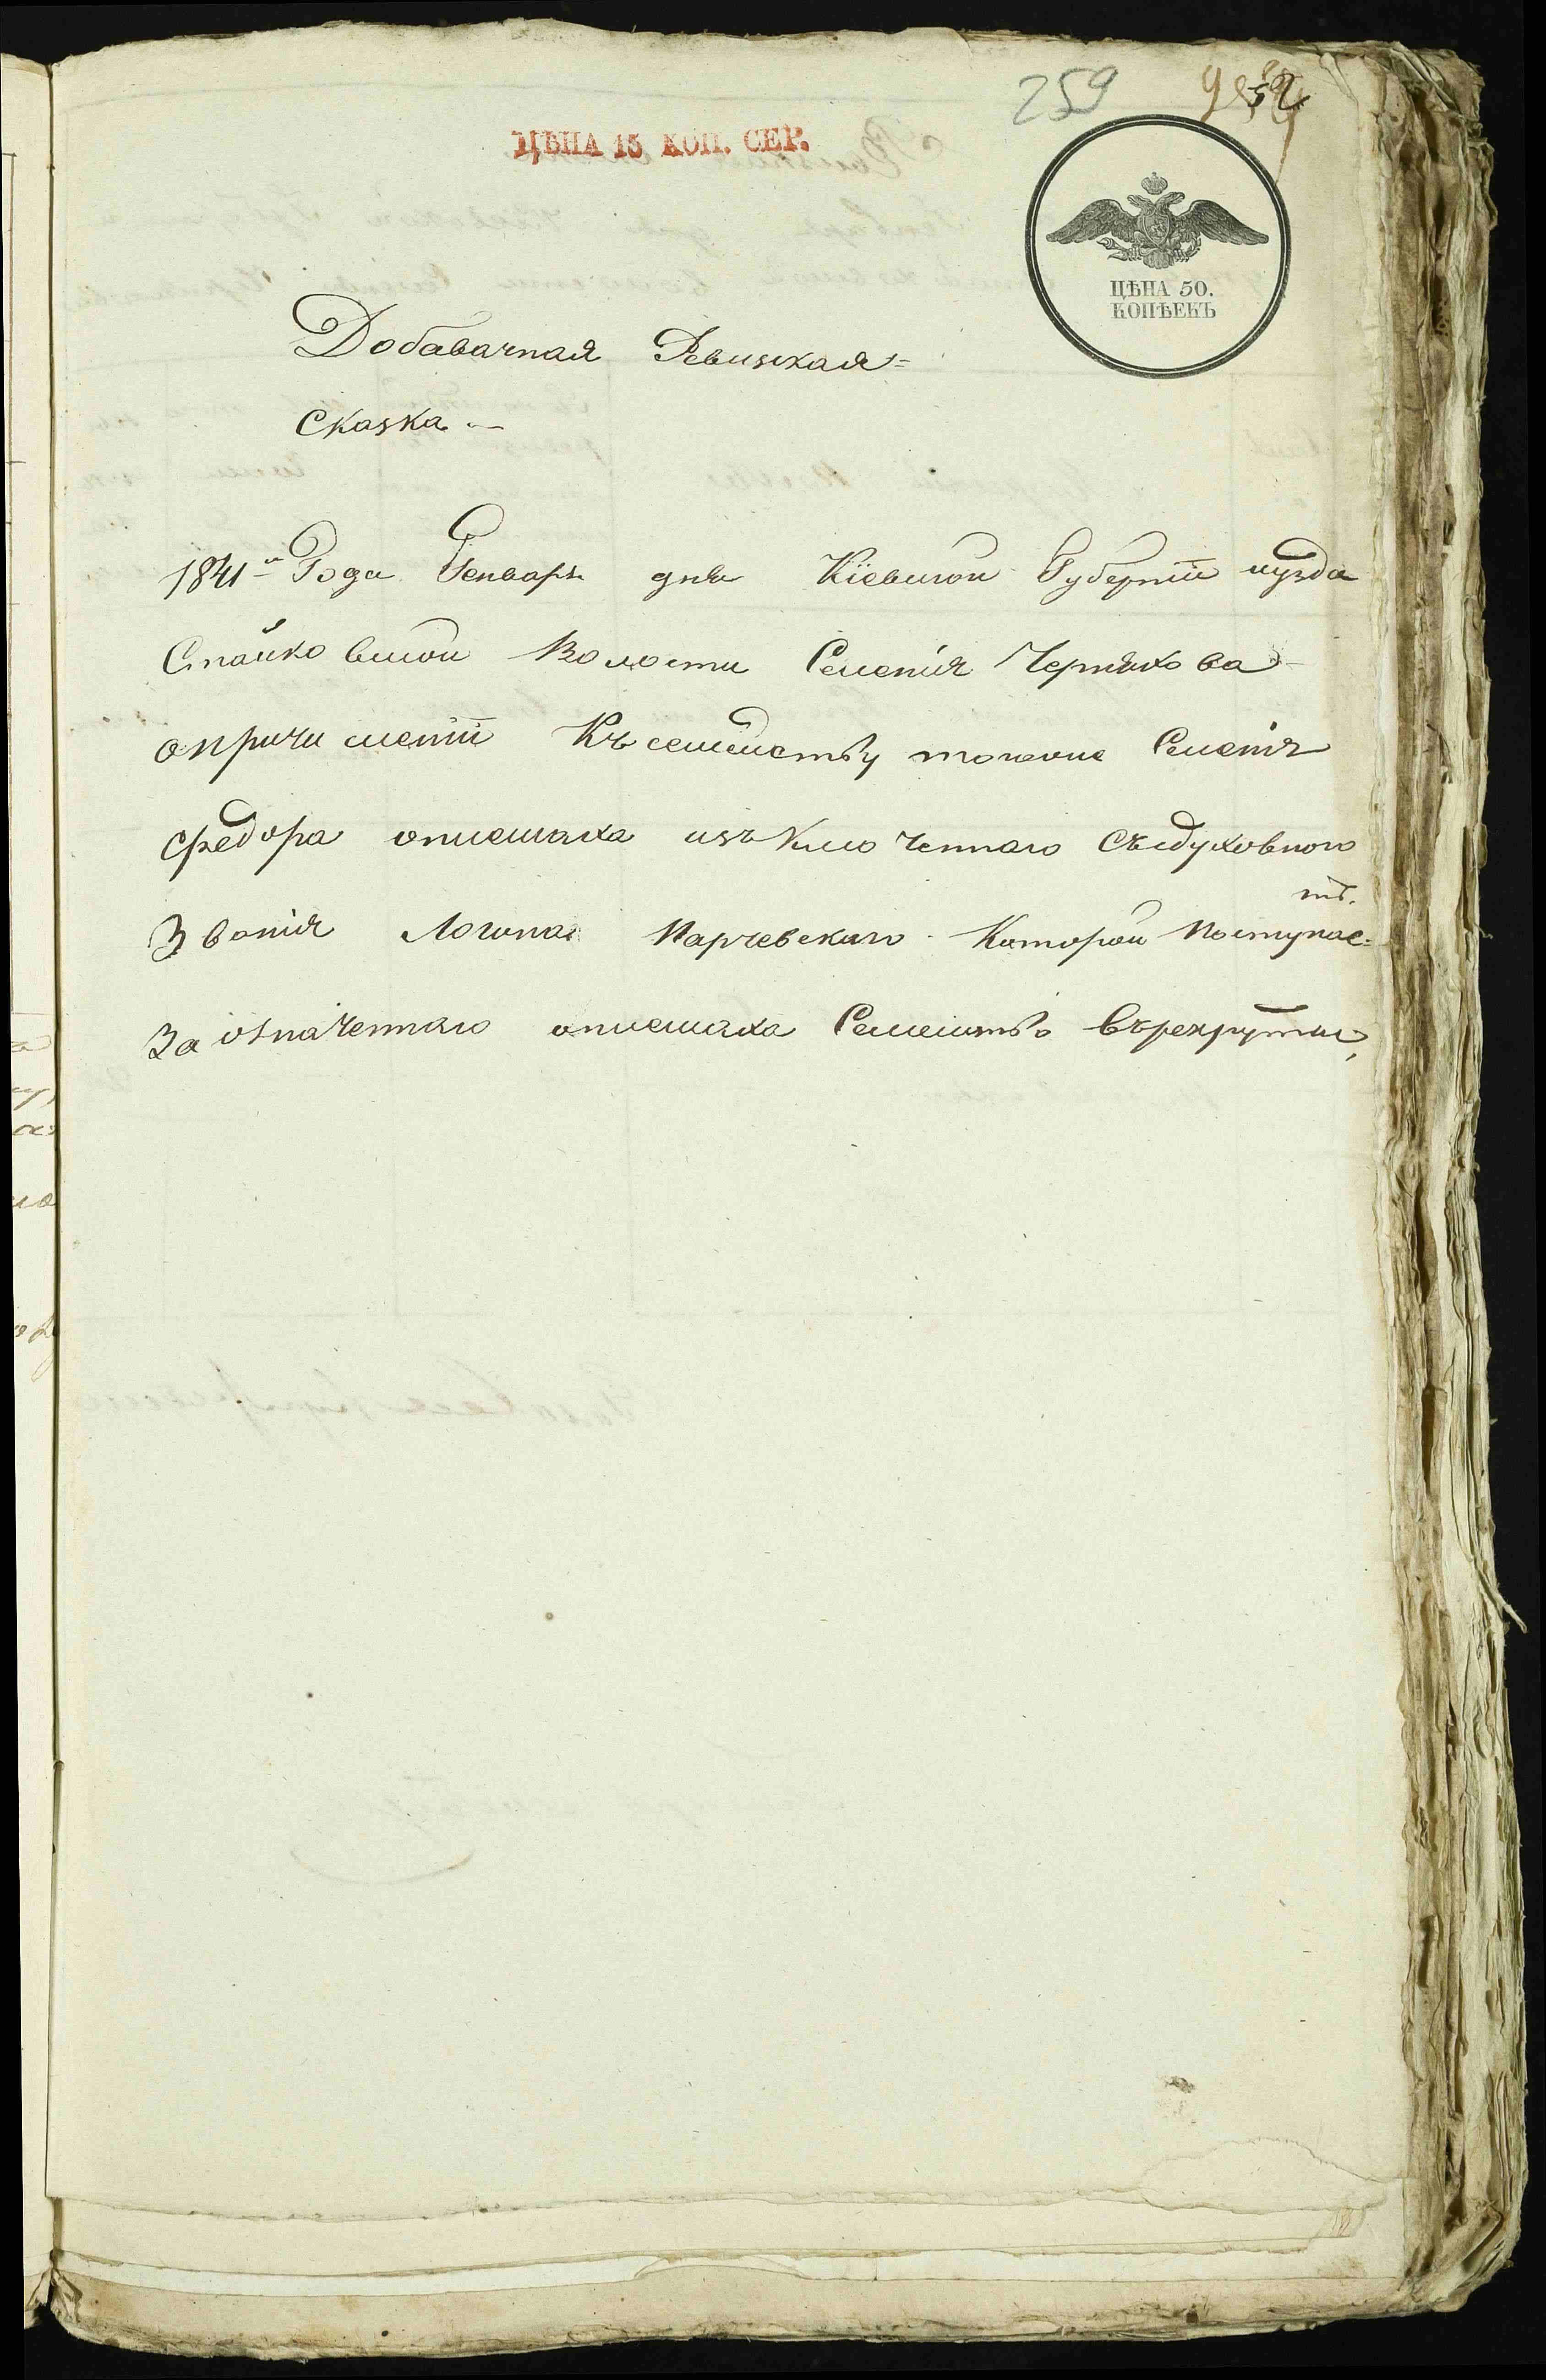 259
ЦѢНА 15 КОП. СЕР.
ЦѢНА 50.
КОПѢЕКЪ
Добавачная Ревизкая=
Сказка —
1841го Года Генваря дня Кіевской Губерніи иуезда
Стайковской Волости Селенія Черняхова
опричисленіи Къ семейству тогоже Селенія
Федора опиемаха изъключеннаго Съ духовного
Званія Логина Марчевского Которой Поступае=тъ.
За означеннаго опиемаха Семейство Въ рекруты,